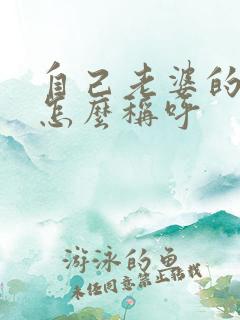 自己老婆的
怎麼稱呼
游泳的魚
未经同意禁止转载